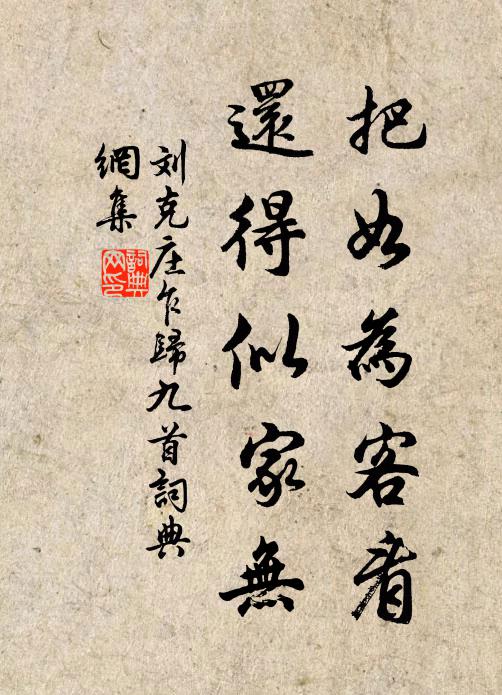 把如為客看
還得似家無
刘克庄乍歸九首詞典
網集
詞典
网印